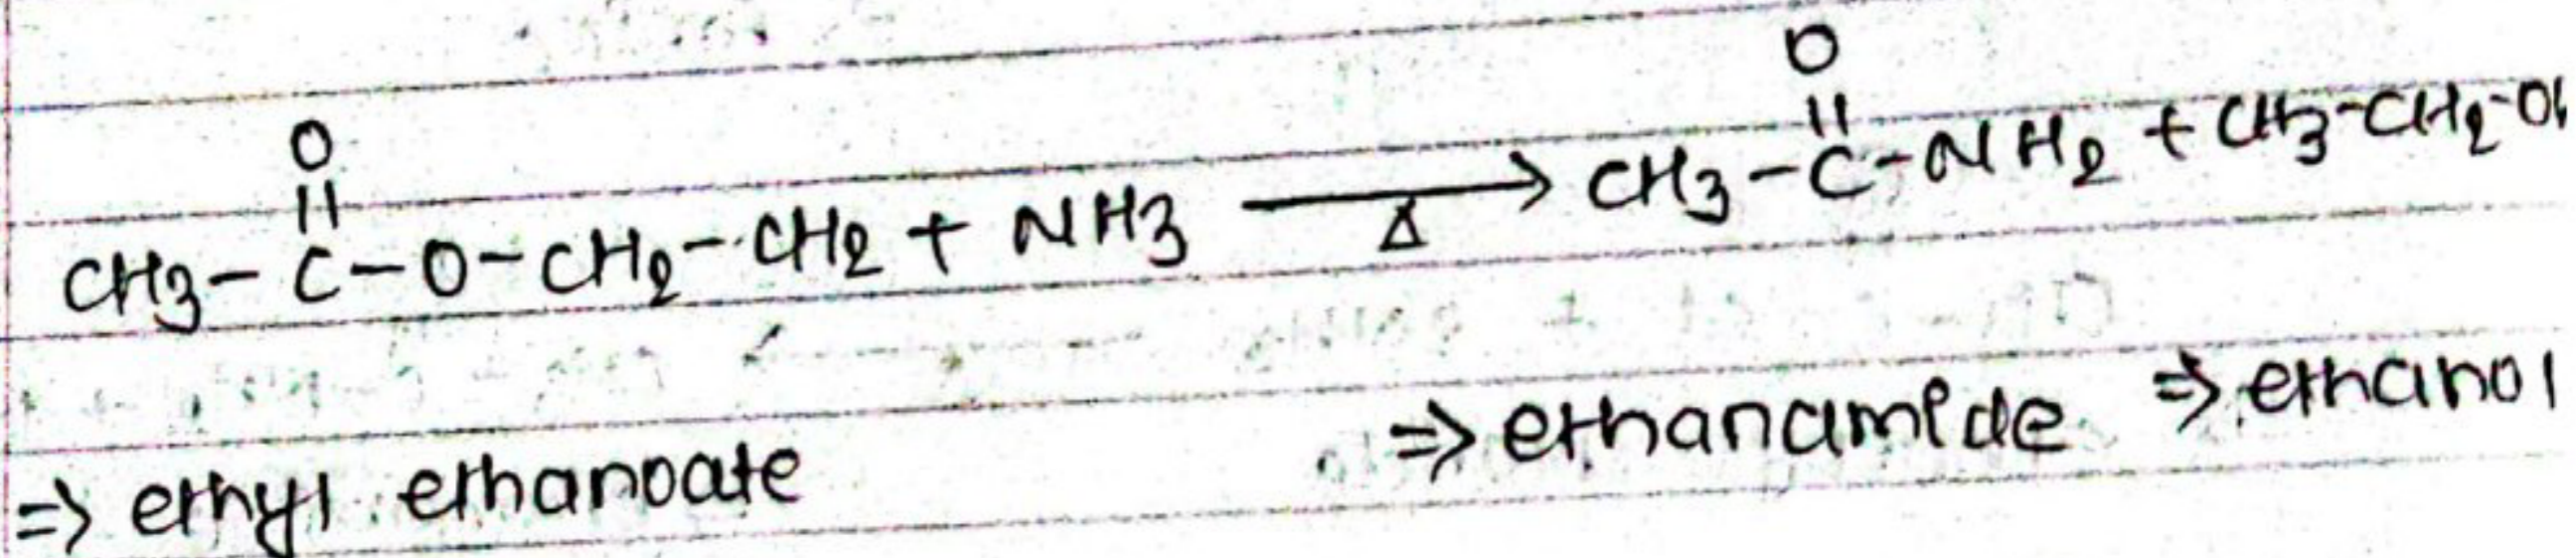 O
O
||
||
CH3-C-O-CH2-CH2 + NH3 ⟶ CH3-C-NH2 + CH3-CH2-OH
Δ
⇒ ethyl ethanoate ⇒ ethanamide ⇒ ethanol